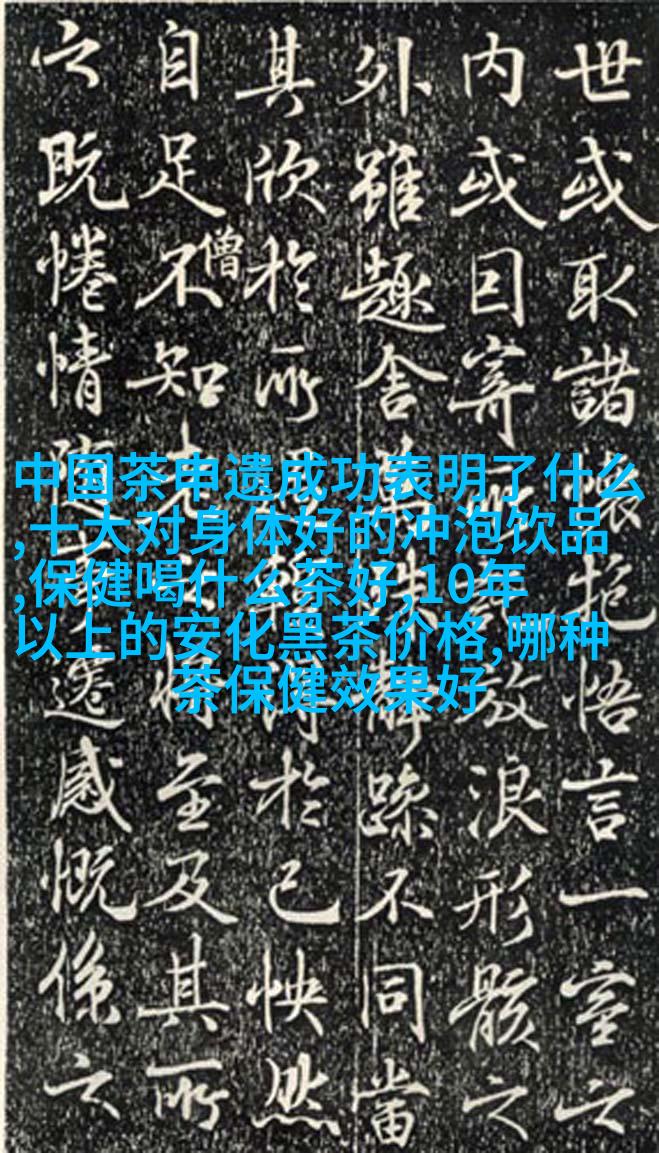 世或取諸懷抱悟言一室之
内或因寄所託放浪形骸之
外雖趣舍萬殊靜躁不同當
其欣於所遇暫得於己怏然
自足不知老之將至及其所
僧
之既惓情隨事遷感慨係之
中国茶申遗成功表明了什么
,十大对身体好的冲泡饮品
,保健喝什么茶好,10年
以上的安化黑茶价格,哪种
茶保健效果好